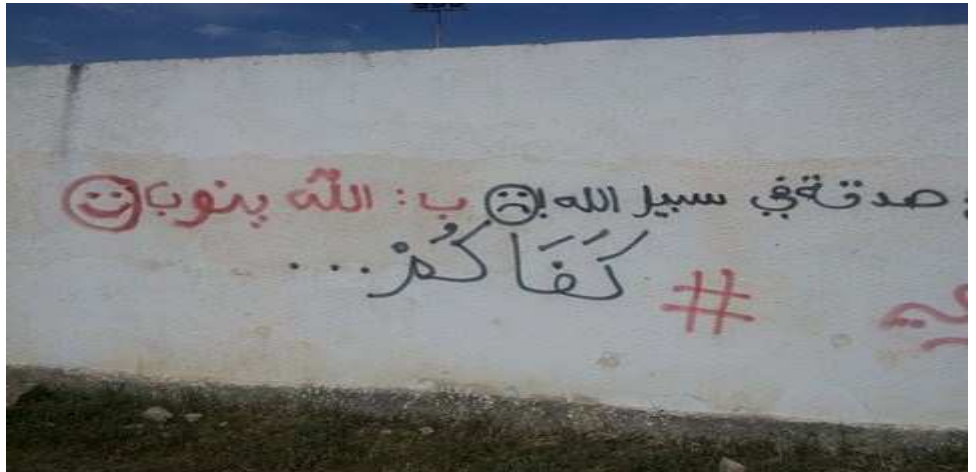 صدقة في سبيل الله! ب: الله ينوب
# كَفَاكُمْ...